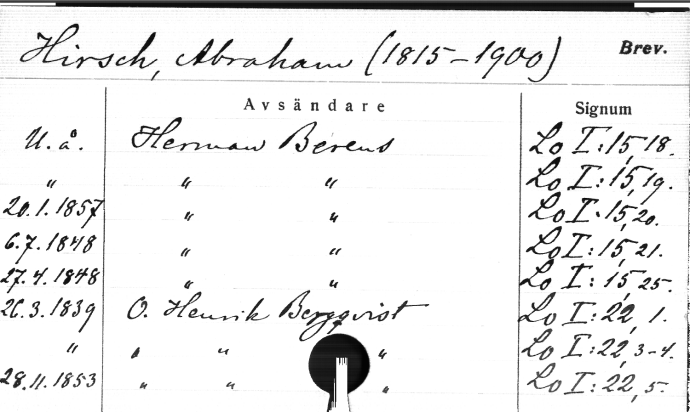 Hirsch, Abraham (1815-1900) Brev.
Avsändare Signum
U. å. Herman Berens Lo I:15, 18.
" " " Lo I:15, 19.
20.1.1857 " " Lo I:15, 20.
6.7.1848 " " Lo I:15, 21.
27.4.1848 " " Lo I:15, 25.
26.3.1839 O. Henrik Bergqvist Lo I:22, 1.
" " " " Lo I:22, 3-4.
28.11.1853 " " " Lo I:22, 5.